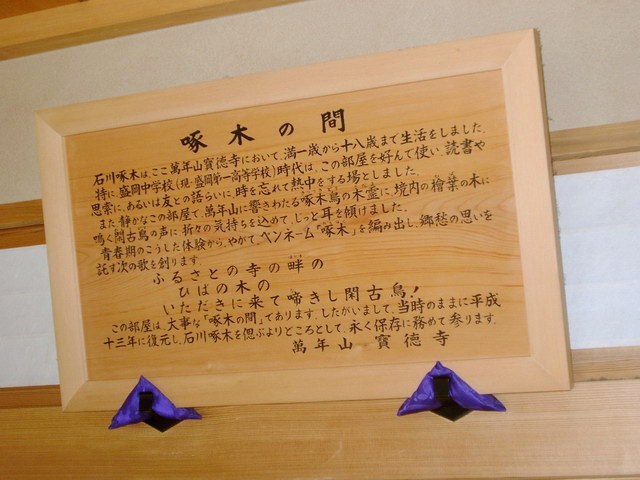 啄木の間
石川啄木は、ここ萬年山寶徳寺において、満一歳から十八歳まで生活をしました。
特に盛岡中学校(現・盛岡第一高等学校)時代は、この部屋を好んで使い、読書や
思索に、あるいは友との語らいに時を忘れて熱中をする場としました。
また静かなこの部屋で、萬年山に響きわたる啄木鳥の木霊に境内の檜葉の木に
鳴く閑古鳥の声に折々の気持ちを込めて、じっと耳を傾けました。
青春期のこうした体験から、やがて、ペンネーム「啄木」を編み出し、郷愁の思いを
託す次の歌を創ります。
ふるさとの寺の畔の
ひばの木の
いただきに来て啼きし閑古鳥!
この部屋は、大事な「啄木の間」であります。したがいまして、当時のままに平成
十三年に復元し、石川啄木を偲ぶよりどころとして、永く保存に務めて参ります。
萬年山 寶徳寺